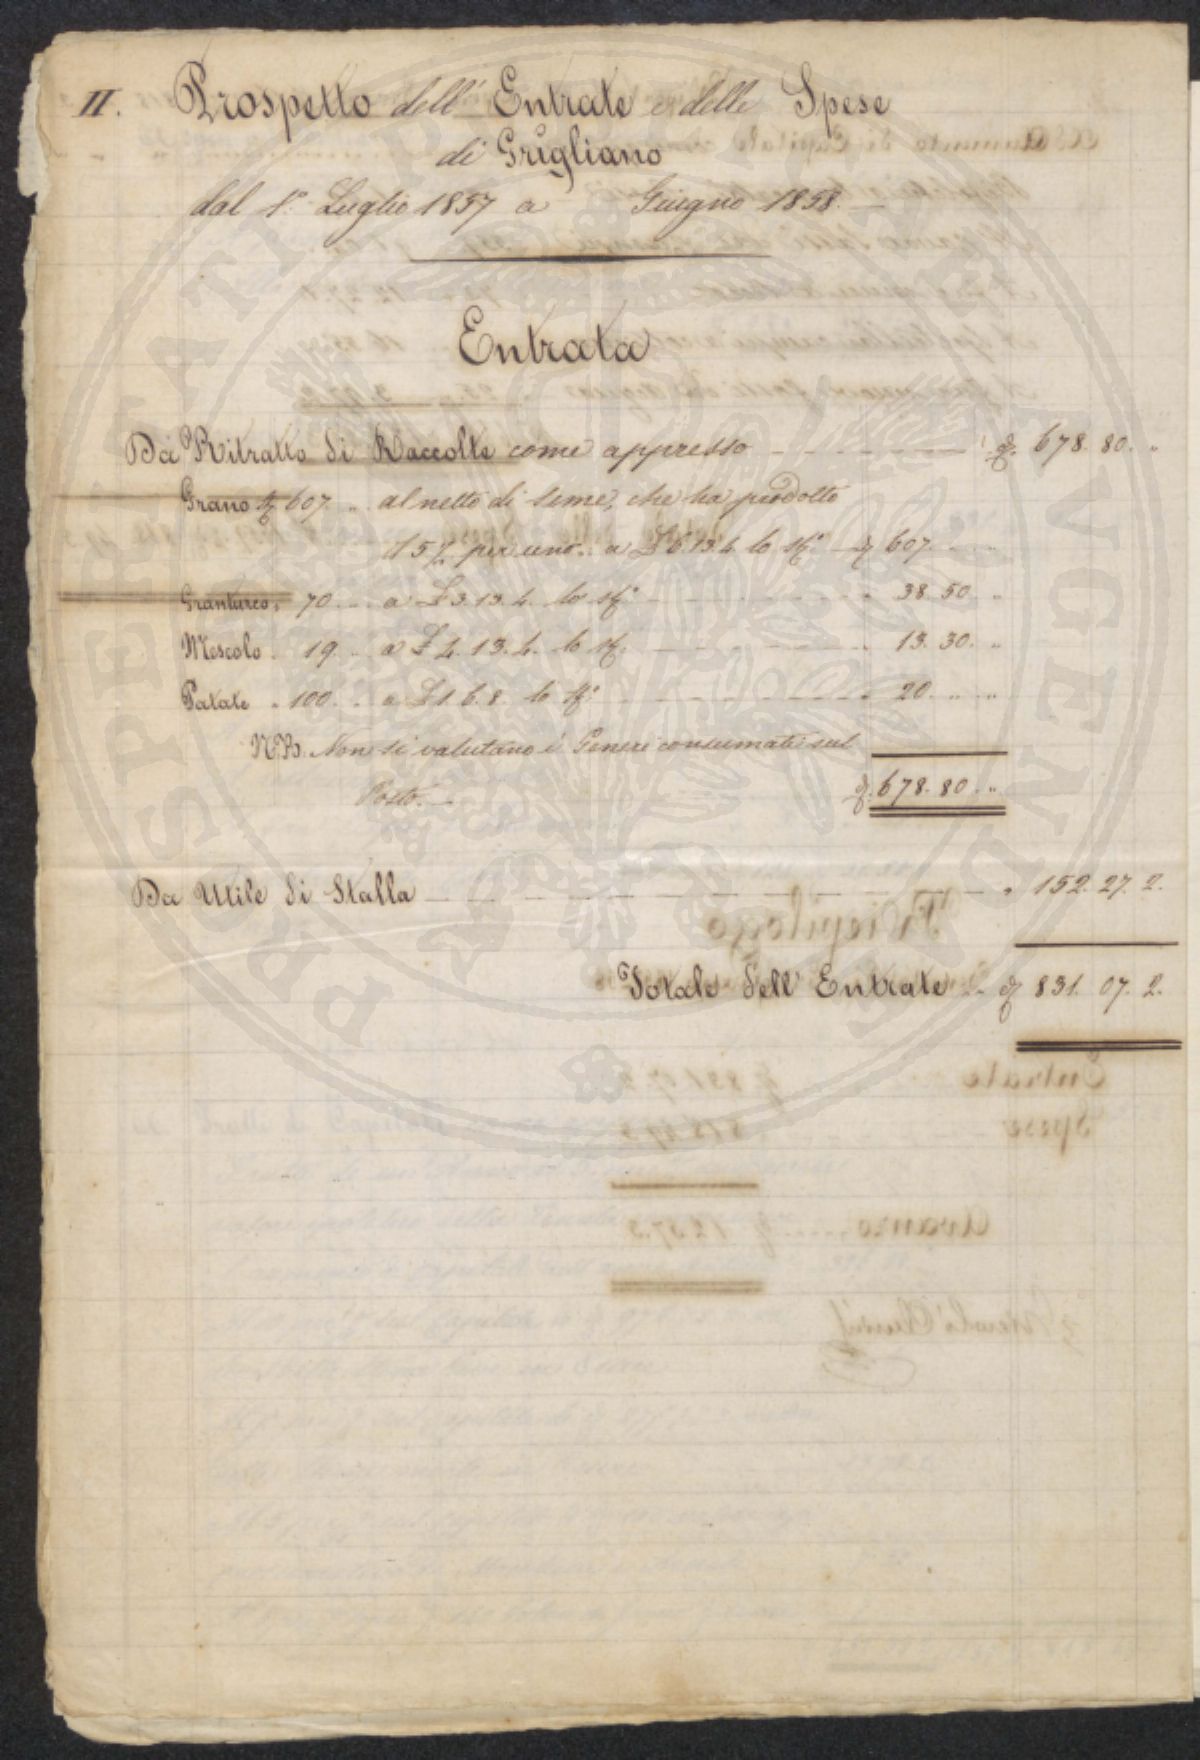 II. Prospetto dell' Entrate e delle Spese
di Grigliano
dal 1º Luglio 1857 a Giugno 1858.
Entrata
Da Ritratto di Raccolte come appresso 678. 80. "
Grano 607. " al netto di seme, che ha prodotto
per uno. a £ 6.13.4 lo 607. " "
Granturco " 70. " a £ 3.13.4. lo 38. 50. "
Mescolo " 19. " a £ 4.13.4. lo 13. 30. "
Patate " 100. " a £ 1.6.8. lo 20. " "
NB. Non si valutano i Generi consumati sul
Posto. 678. 80. "
Da Utile di Stalla " 152. 27. 2.
Totale dell' Entrate 831. 07. 2.
PROSPERITATI PUBLICAE AVGENDAE